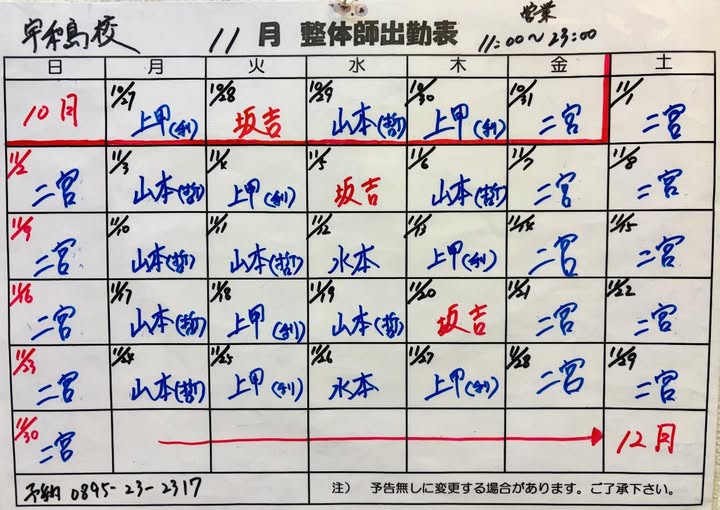 宇和島校 11月 整体師出勤表 営業 11:00～23:00
日 月 火 水 木 金 土
10月 10/27 上甲(利) 10/28 坂吉 10/29 山本(哲) 10/30 上甲(利) 10/31 二宮 11/1 二宮
11/2 二宮 11/3 山本(哲) 11/4 上甲(利) 11/5 坂吉 11/6 山本(哲) 11/7 二宮 11/8 二宮
11/9 二宮 11/10 山本(哲) 11/11 山本(哲) 11/12 水本 11/13 上甲(利) 11/14 二宮 11/15 二宮
11/16 二宮 11/17 山本(哲) 11/18 上甲(利) 11/19 山本(哲) 11/20 坂吉 11/21 二宮 11/22 二宮
11/23 二宮 11/24 山本(哲) 11/25 上甲(利) 11/26 水本 11/27 上甲(利) 11/28 二宮 11/29 二宮
11/30 二宮 12月
予約 0895-23-2317 注） 予告無しに変更する場合があります。ご了承下さい。